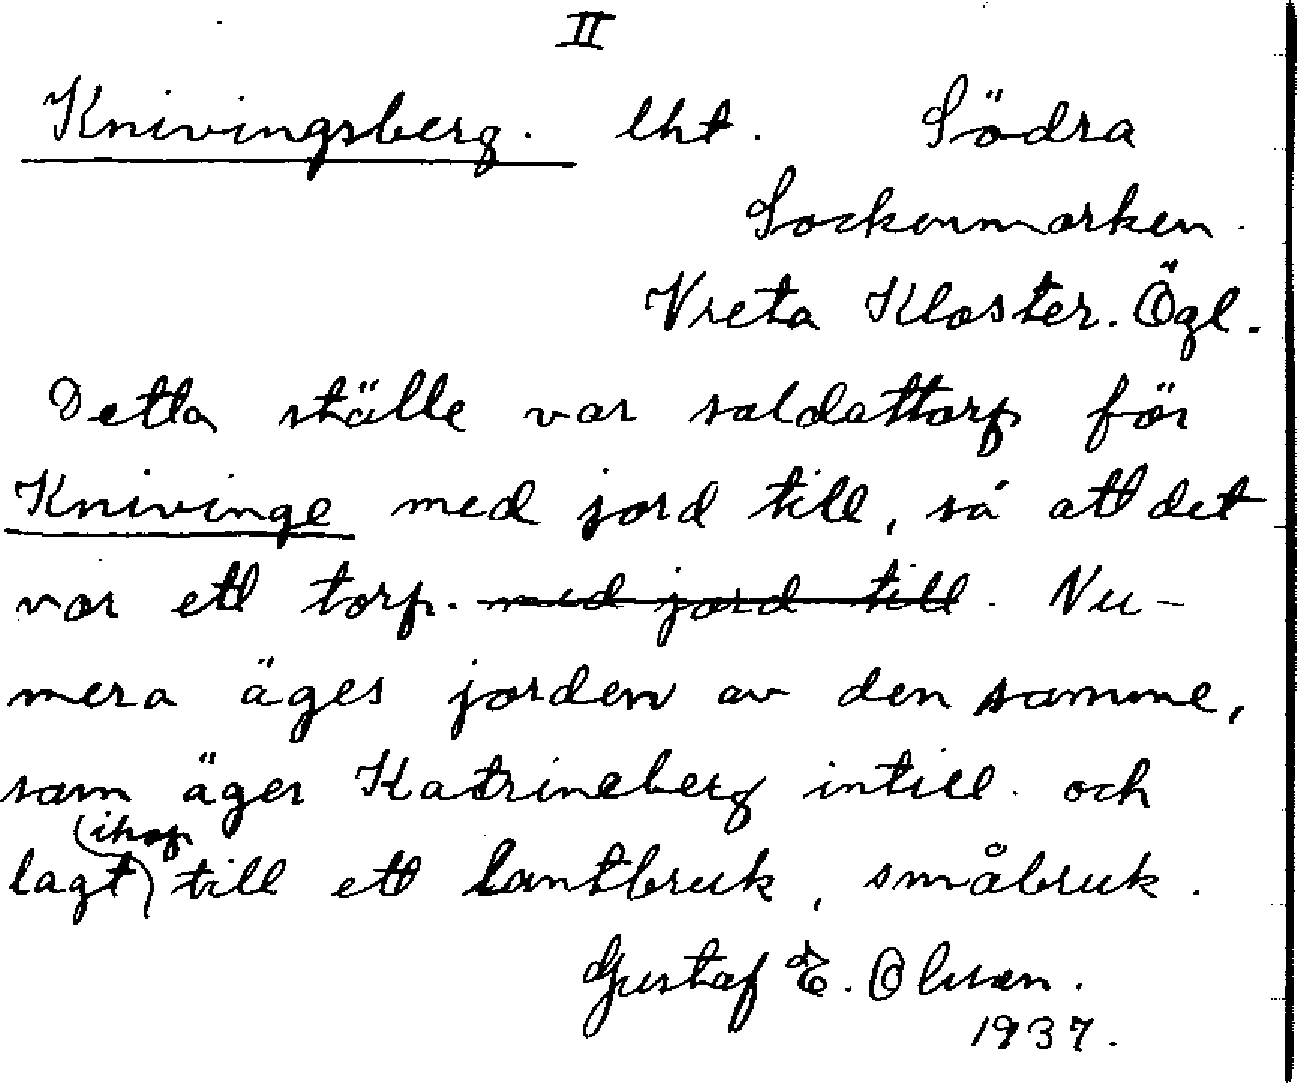 II
Knivingsberg. lht. Södra
Sockenmarken.
Vreta Kloster. Ögl.
Detta ställe var soldattorp för
Knivinge med jord till, så att det
var ett torp. med jord till. Nu-
mera äges jorden av den samme,
som äger Katrineberg intill och
lagt ihop till ett lantbruk, småbruk.
Gustaf E. Olsson.
1937.